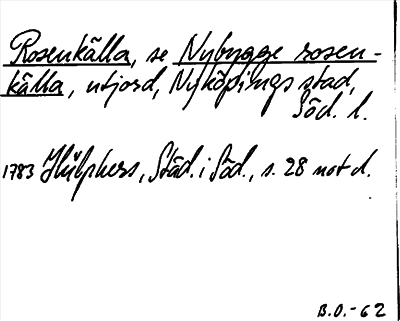 Rosenkälla, se Nybygge rosen-
källa, utjord, Nyköpings stad,
Söd. l.
1783 Hülphers, Städ. i Söd., s. 28 not d.
B.O.-62